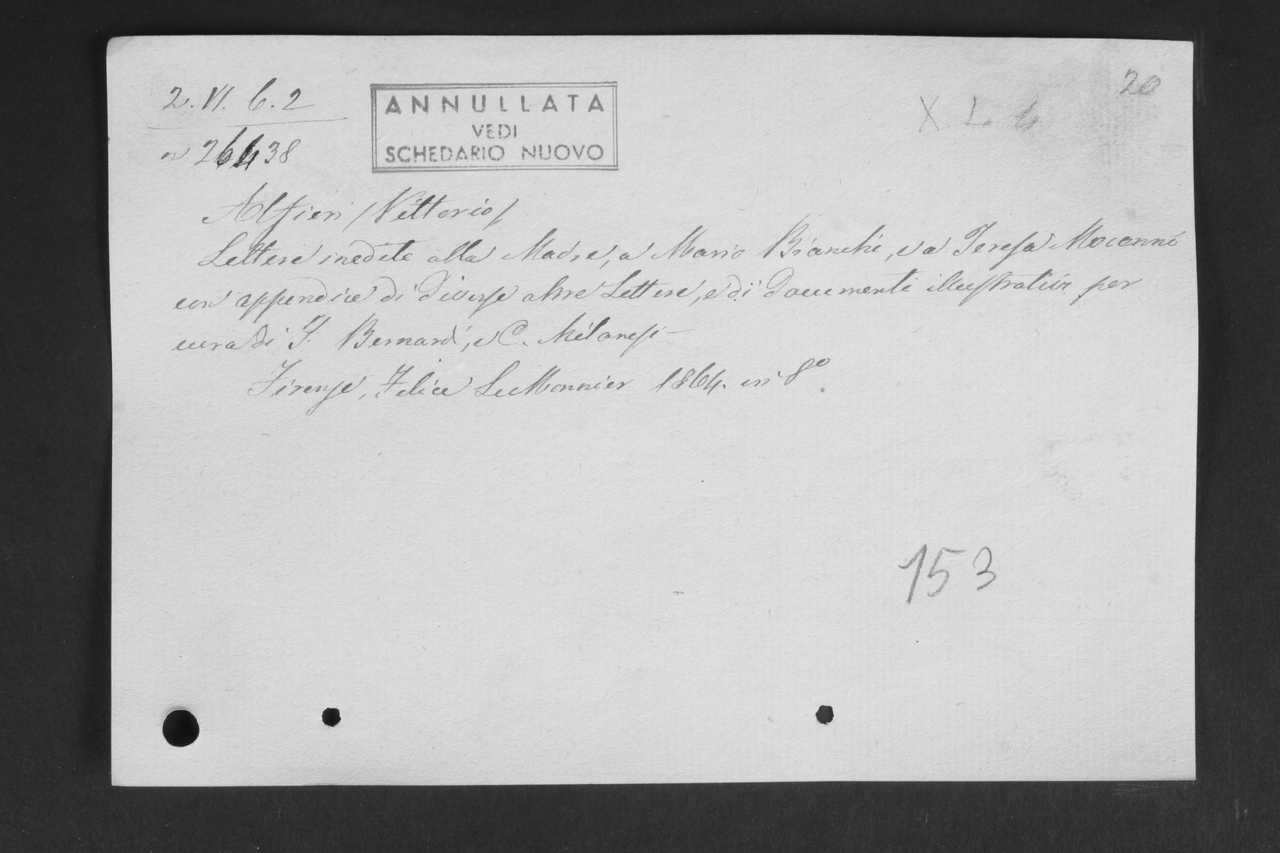 20
2. VI. 6. 2
ANNULLATA
VEDI
SCHEDARIO NUOVO
X L 4
n 26438
Alfieri /Vittorio/
Lettere inedite alla Madre, a Mario Bianchi, e a Teresa Mocenni
con appendice di diverse altre Lettere, e di Documenti illustrativi per
cura di I. Bernardi, e C. Milanesi
Firenze, Felice LeMonnier 1864. in 8°.
153